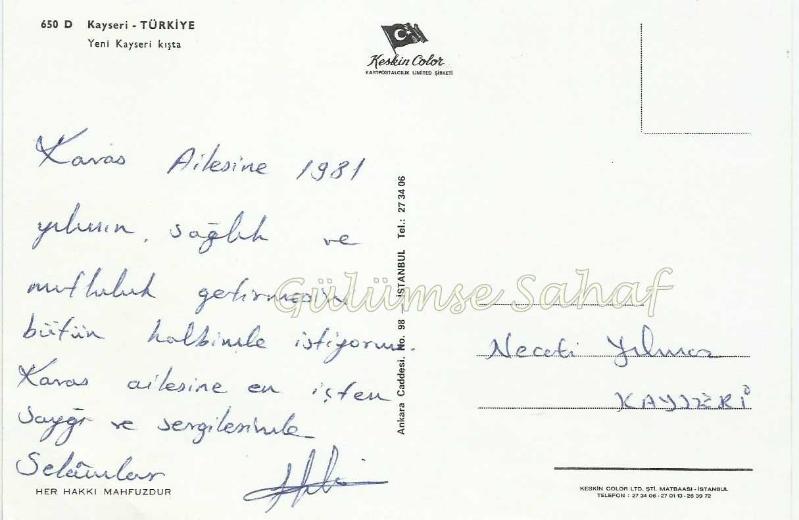 650 D Kayseri - TÜRKİYE
Yeni Kayseri kışta
Keskin Color
KARTPOSTALCILIK LİMİTED ŞİRKETİ
Karas Ailesine 1981
yılının, sağlık ve
mutluluk getirmesini
bütün kalbimle istiyorum.
Karas ailesine en içten
saygı ve sevgilerimle
Selâmlar
HER HAKKI MAHFUZDUR
Ankara Caddesi. No. 98 — İSTANBUL Tel.: 27 34 06
Gülümse Sahaf
Necati Yılmaz
KAYSERİ
KESKİN COLOR LTD. ŞTİ. MATBAASI - İSTANBUL
TELEFON : 27 34 06 - 27 01 13 - 26 39 72